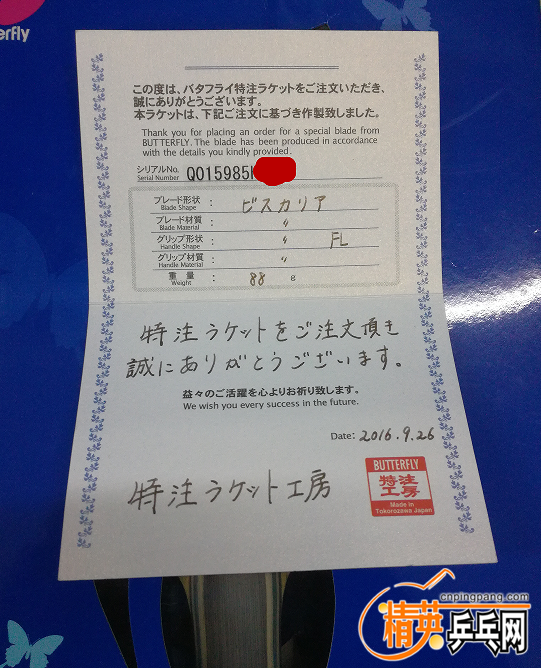 erfly
この度は、バタフライ特注ラケットをご注文いただき、
誠にありがとうございます。
本ラケットは、下記ご注文に基づき作製致しました。
Thank you for placing an order for a special blade from
BUTTERFLY. The blade has been produced in accordance
with the details you kindly provided.
シリアルNo.
Serial Number
Q015985
ブレード形状 : ビスカリア
Blade Shape
ブレード材質 : 〃
Blade Material
グリップ形状 : 〃 FL
Handle Shape
グリップ材質 : 〃
Handle Material
重量 : 88 g
Weight
特注ラケットをご注文頂き
誠にありがとうございます。
益々のご活躍を心よりお祈り致します。
We wish you every success in the future.
Date: 2016.9.26
特注ラケット工房
BUTTERFLY
特注
工房
Made in
Tokorozawa Japan
cnpingpang.com
精英乒乓网